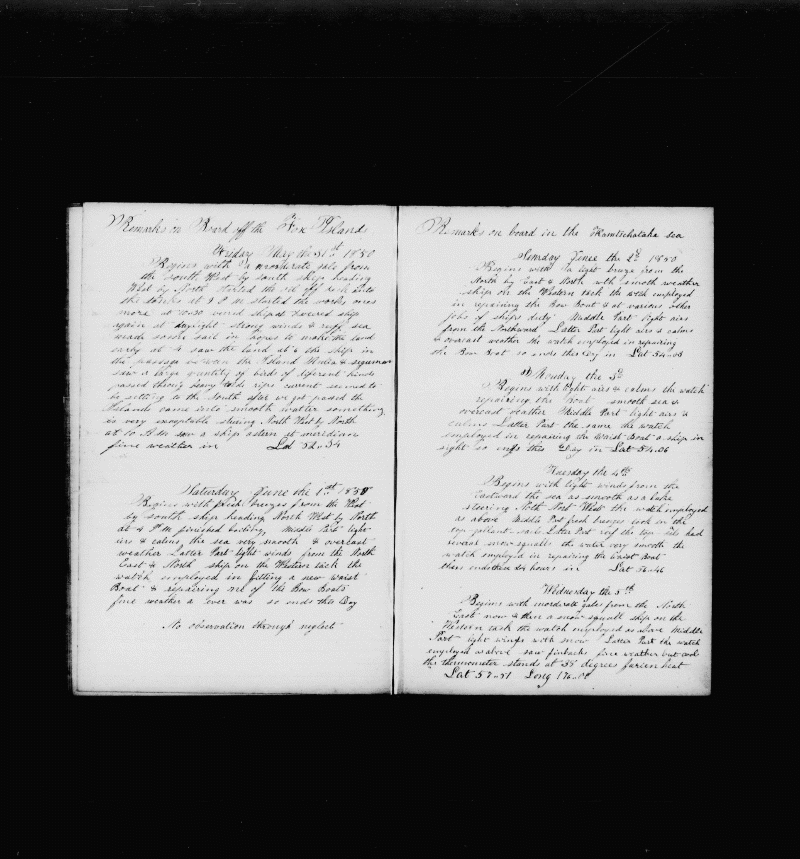 Remarks on Board off the Fox Islands
Friday May the 31st 1850
Begins with a moderate gale from
the South West by South ship heading
West by North started the
the tanks at 3 P M started the works ones
more at 10.30 wind
again at daylight strong winds & ruff sea
made some sail in hopes to make the land
early at 4 saw the land at 6 the ship in
the passage between the Island &
saw a large quantity of birds of diferent kinds
passed throug heavy tide rips current seemed to
be setting to the South after we got passed the
Islands came into smooth watter something
is very exceptable stering North West by North
at 10 A M saw a ship astern at meridian
fine weather in Lat 52..54
Saturday June the 1st 1850
Begins with fresh breezes from the West
by South ship heading North West by North
at 4 P M finished boiling Middle Part light
airs & calms the sea very smooth & overcast
weather Latter Part light winds from the North
East & North ship on the Western tack the
watch employed in fitting a new waist
Boat & repairing one of the Bow Boats
fine weather as ever was so ends this Day
No observation through neglect
Remarks on board in the Kamtschatake sea
Sunday June the 2d 1850
Begins with a light breeze from the
North by East & North with smooth weather
ship on the Western tack the watch employed
in repairing the Bow Boat & at various other
jobs of ships duty Middle Part light airs
from the Northward Latter Part light airs & calms
& overcast weather the watch employed in repairing
the Bow Boat so ends this day in Lat 54..03
Monday the 3d
Begins with light airs & calms the watch
repairing the Boat smooth sea &
overcast weather Middle Part light airs &
calms Latter Part the same the watch
employed in repairing the Waist Boat a ship in
sight so ends this Day in Lat 54..06
Tuesday the 4th
Begins with light winds from the
Eastward the sea as smooth as a lake
steering North North West the watch employed
as above Middle Part fresh breezes took in the
sails Latter Part reef the top sails had
several snow squalls the water very smooth the
watch employed in repairing the Waist Boat
thus ends these 24 hours in Lat 56..46
Wednesday the 5th
Begins with moderate gales from the North
East now & then a snow squall ship on the
Western tack the watch employed as above Middle
Part light winds with snow Latter Part the watch
employed as above saw finbacks fine weather but cool
the thermometer stands at 38 degrees farien heat
Lat 57..31 Long